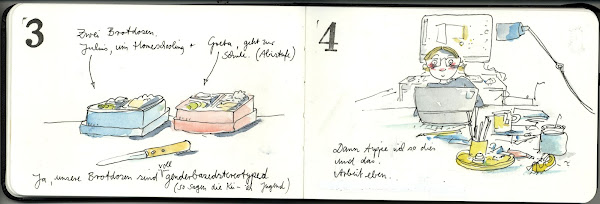 3
Zwei Brotdosen.
Julius, im Homeschooling + Greta, geht zur
Schule. (Abistufe)
Ja, unsere Brotdosen sind voll genderbasedstereotyped
(so sagen die Ki- Jugend)
4
Dann tippe ich so dies
und das.
Arbeit eben.